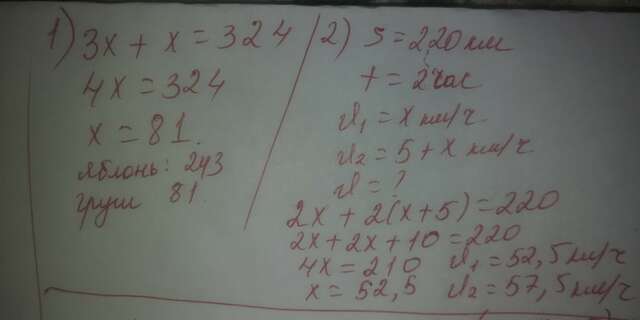 1) 3x + x = 324
4x = 324
x = 81.
яблонь: 243
груш 81.
2) S = 220 км
t = 2 час
v₁ = x км/ч.
v₂ = 5 + x км/ч
v = ?
2x + 2(x+5) = 220
2x + 2x + 10 = 220
4x = 210 v₁ = 52,5 км/ч
x = 52,5 v₂ = 57,5 км/ч